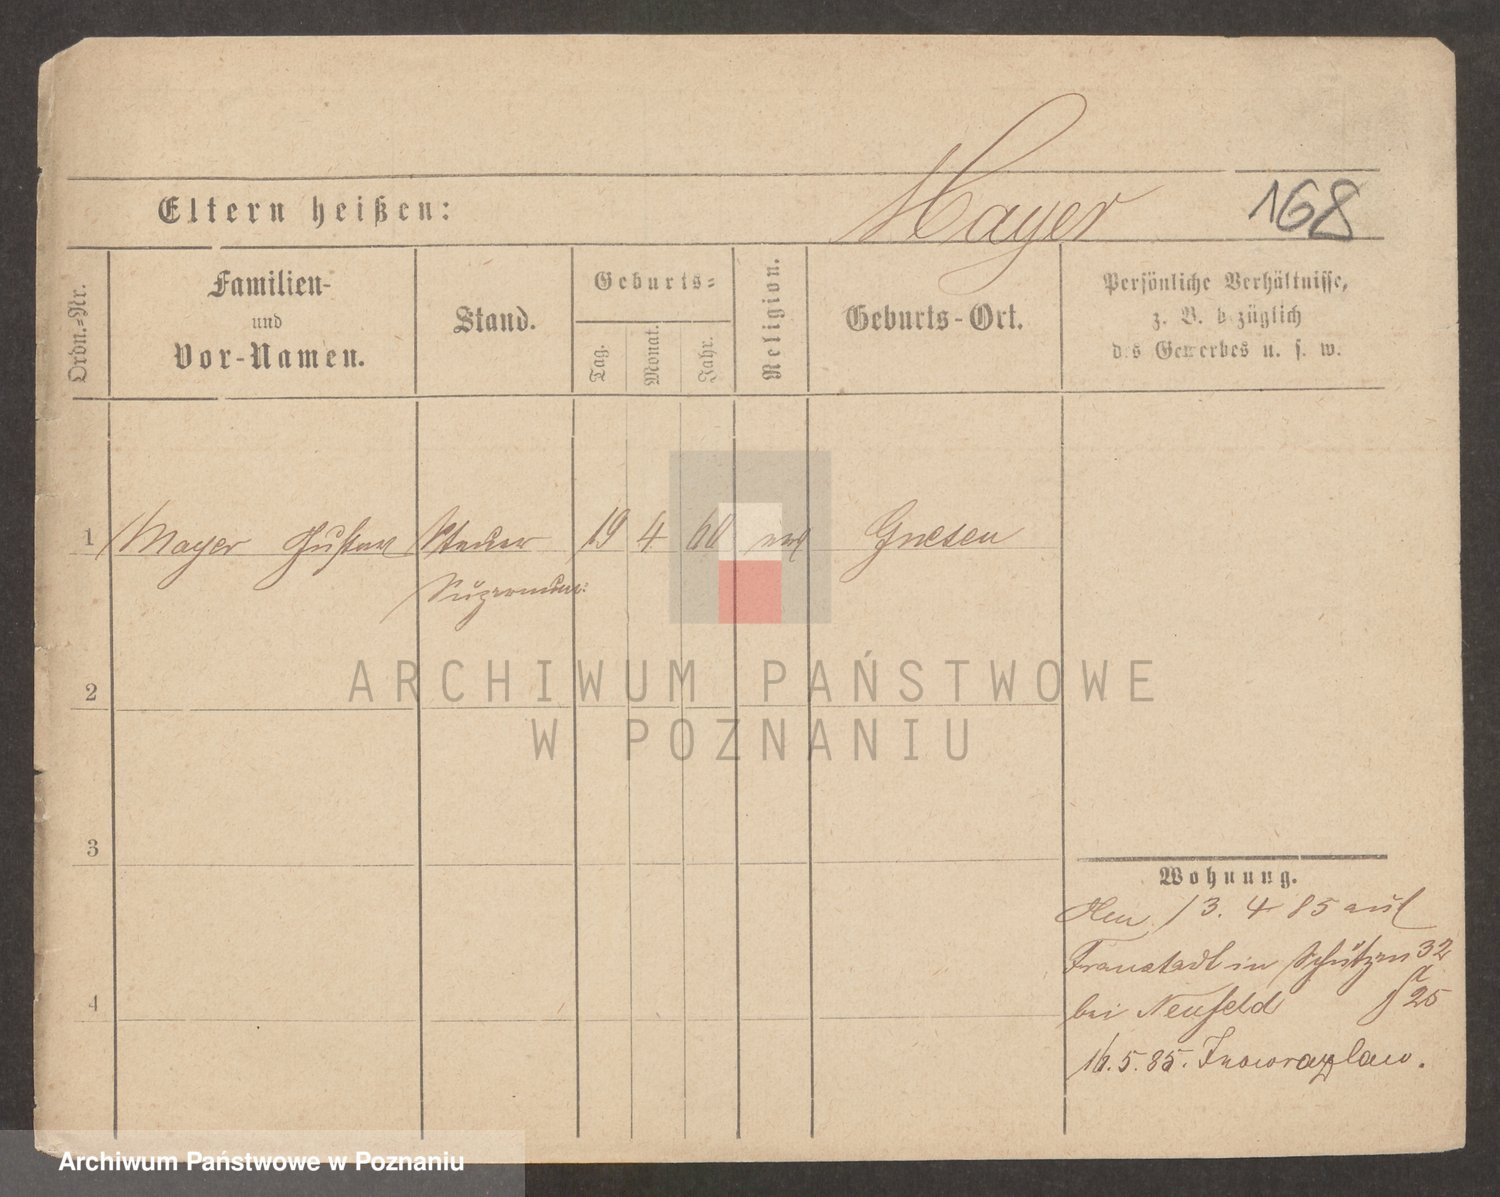 Mayer 168
Eltern heißen:
Ordn.=Nr.
Familien-
und
Vor-Namen.
Stand.
Geburts=
Tag.
Monat.
Jahr.
Religion.
Geburts-Ort.
Persönliche Verhältnisse,
z. B. bezüglich
des Gewerbes u. s. w.
1 Mayer Gustav Steuer 19 4 60 Gnesen
Supernum:
2
3
4
Wohnung.
13. 4 85 aus
Fraustadt in Schützen 32
bei Neufeld 25
16. 5. 85. Inowrazlaw.
ARCHIWUM PAŃSTWOWE
W POZNANIU
Archiwum Państwowe w Poznaniu